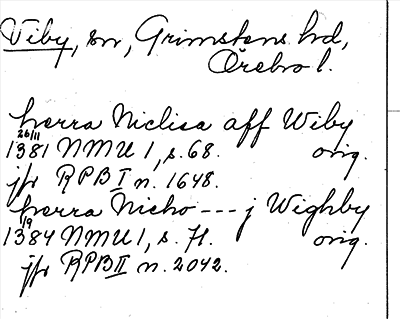 Viby, sn, Grimstens hd,
Örebro l.
herra Niclisa aff Wiby
26/11
1381 NMU 1, s. 68. orig.
jfr RPB I n. 1648.
herra Nicho --- j Wighby
1384 NMU 1, s. 71. orig.
jfr RPB II n. 2042.